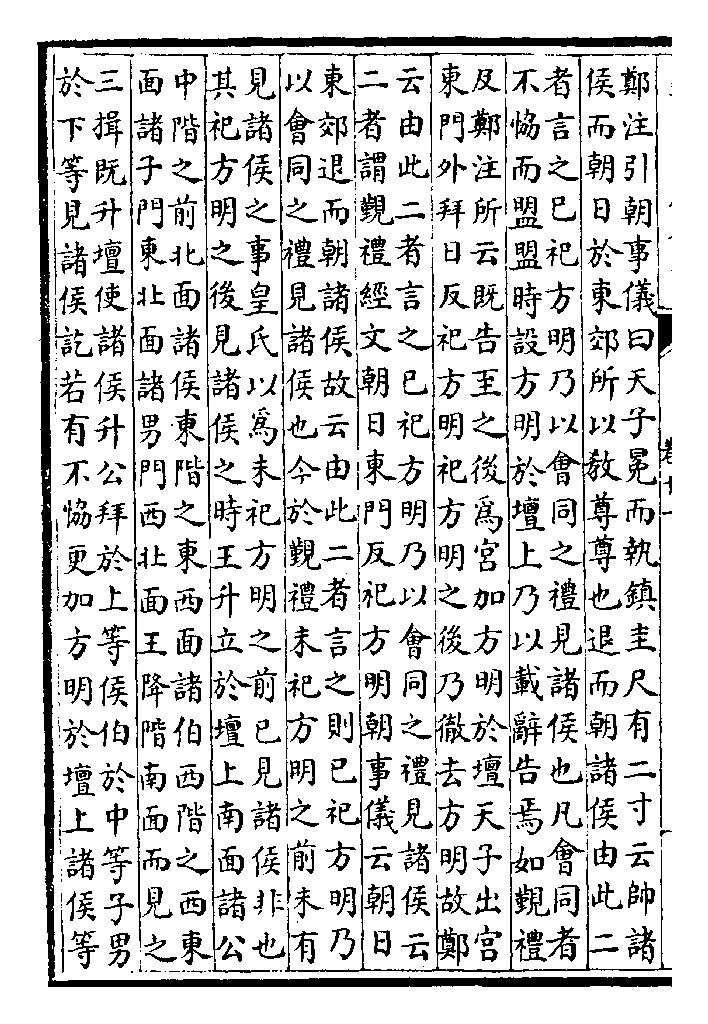 鄭注引朝事儀曰天子冕而執鎮圭尺有二寸云帥諸
侯而朝日於東郊所以敎尊尊也退而朝諸侯由此二
者言之已祀方明乃以會同之禮見諸侯也凡會同者
不恊而盟盟時設方明於壇上乃以載辭告焉如覲禮
及鄭注所云既告至之後爲宮加方明於壇天子出宮
東門外拜日反祀方明祀方明之後乃徹去方明故鄭
云由此二者言之已祀方明乃以會同之禮見諸侯云
二者謂覲禮經文朝日東門反祀方明朝事儀云朝日
東郊退而朝諸侯故云由此二者言之則已祀方明乃
以會同之禮見諸侯也今於覲禮未祀方明之前未有
見諸侯之事皇氏以爲未祀方明之前已見諸侯非也
其祀方明之後見諸侯之時王升立於壇上南面諸公
中階之前北面諸侯東階之東西面諸伯西階之西東
面諸子門東北面諸男門西北面王降階南面而見之
三揖既升壇使諸侯升公拜於上等侯伯於中等子男
於下等見諸侯訖若有不恊更加方明於壇上諸侯等